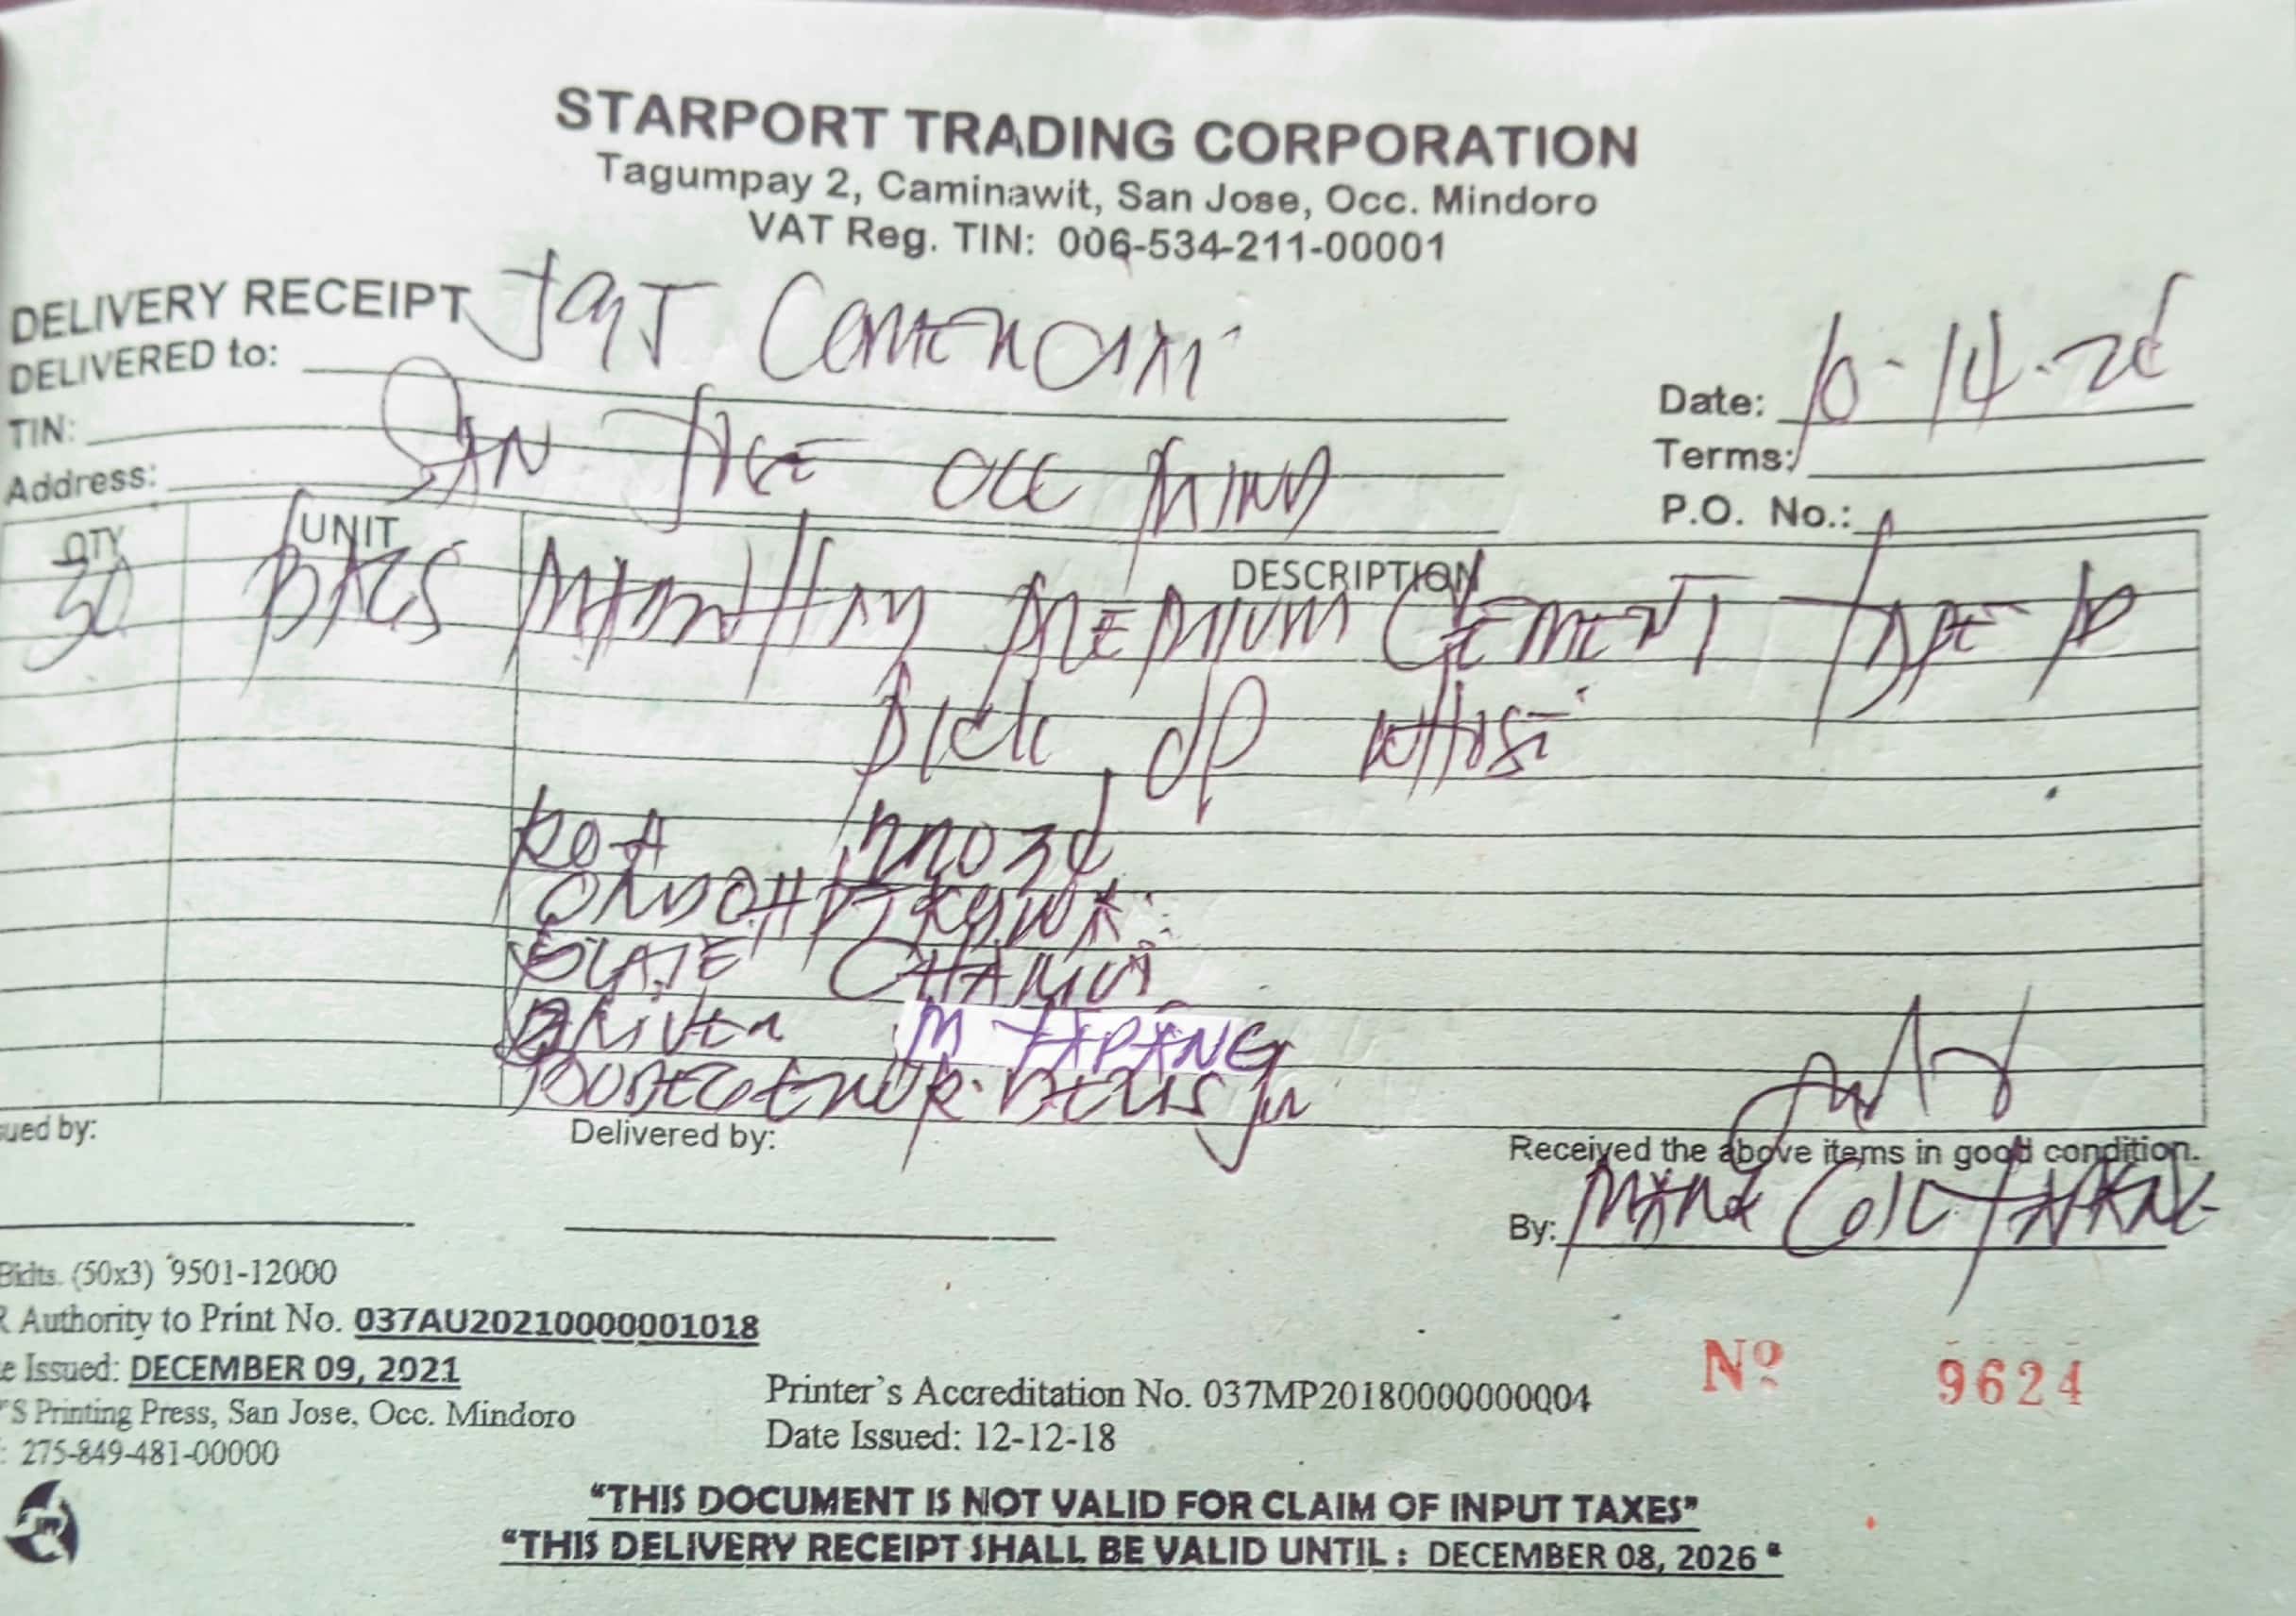 STARPORT TRADING CORPORATION
Tagumpay 2, Caminawit, San Jose, Occ. Mindoro
VAT Reg. TIN: 006-534-211-00001
DELIVERY RECEIPT
DELIVERED to: J9J
Date: 10-14-
TIN:
Terms:
Address: SAN JOSE OCC MIND
P.O. No.:
QTY UNIT DESCRIPTION
30 BAGS PREMIUM CEMENT TYPE 1P
PICK UP WHSE
PLATE
DRIVER M TAPANG
JR
ued by:
Delivered by:
Received the above items in good condition.
By: MARK
Bklts. (50x3) 9501-12000
R Authority to Print No. 037AU20210000001018
e Issued: DECEMBER 09, 2021
'S Printing Press, San Jose, Occ. Mindoro
: 275-849-481-00000
Printer's Accreditation No. 037MP20180000000004
Date Issued: 12-12-18
Nº 9624
"THIS DOCUMENT IS NOT VALID FOR CLAIM OF INPUT TAXES"
"THIS DELIVERY RECEIPT SHALL BE VALID UNTIL : DECEMBER 08, 2026"